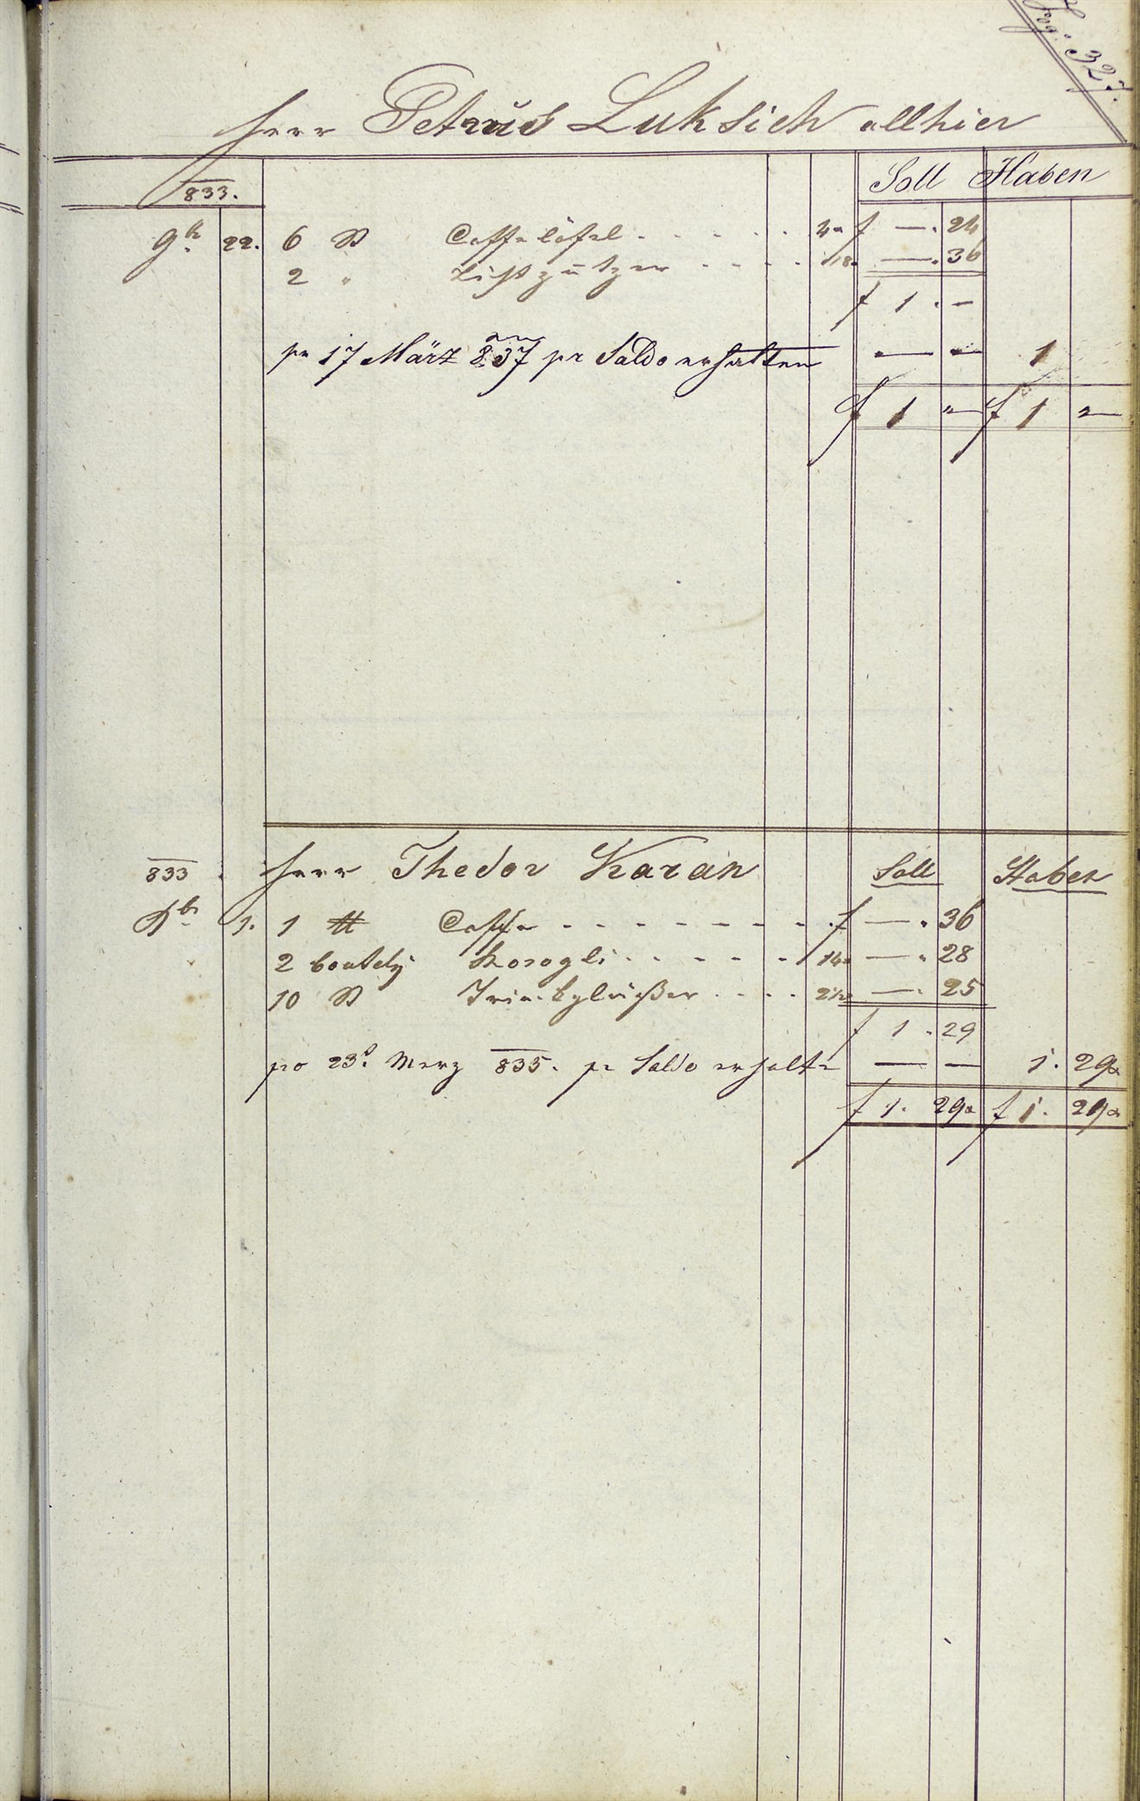 Fog: 327.
Herr Petrus Luksich allhier
833. Soll Haben
9br 22. 6 St Caffelöfel . . . . . 4 f —. 24
2 " Lichtputzer . . . . 18 —. 36
f 1 . —
pr 17 März 837 pr Saldo erhalten — — 1
f 1 — f 1 —
833 Herr Thedor Karan Soll Haben
Xbr 1. 1 ℔ Caffe . . . . . . . . f —. 36
2 boutely Rosogli . . . . . 14 —. 28
10 St Trinkgläßer . . . . 2½ —. 25
f 1 . 29
pro 23t Merz 835. pr Saldo erhalte — — 1. 29
f 1. 29 f 1. 29